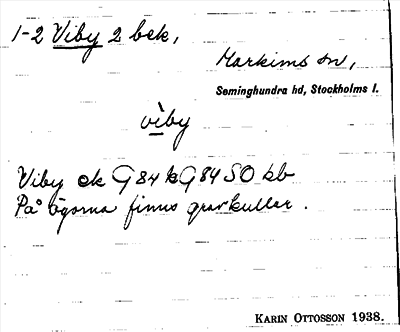 1-2 Viby 2 bek,
Markims sn,
Seminghundra hd, Stockholms l.
vìby
Viby ek G 84 k G 84 SO kb
På ägorna finns gravkullar.
KARIN OTTOSSON 1938.